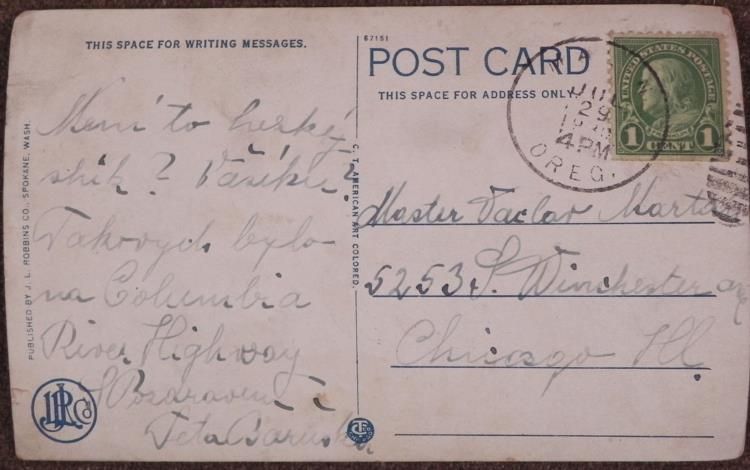 THIS SPACE FOR WRITING MESSAGES.
Není to hezký
shih? Vašíku?
Takových bylo
na Columbia
River Highway
S Pozdravem
Teta Baruska
PUBLISHED BY J. L. ROBBINS CO., SPOKANE, WASH.
C. T. AMERICAN ART COLORED.
67151
POST CARD
THIS SPACE FOR ADDRESS ONLY.
JUL
29
4 PM
OREG.
UNITED STATES POSTAGE
FRANKLIN
1 CENT 1
Master Vaclav Martin
5253 S. Winchester av
Chicago Ill.